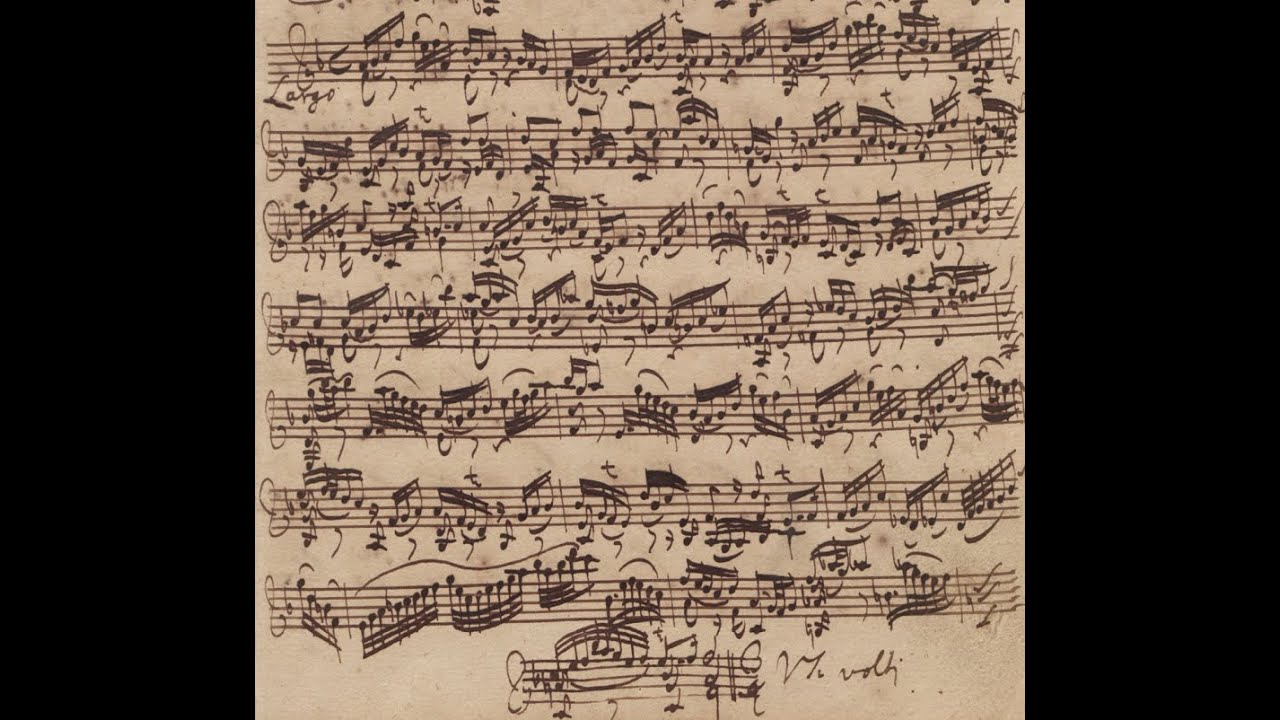 Largo
volti